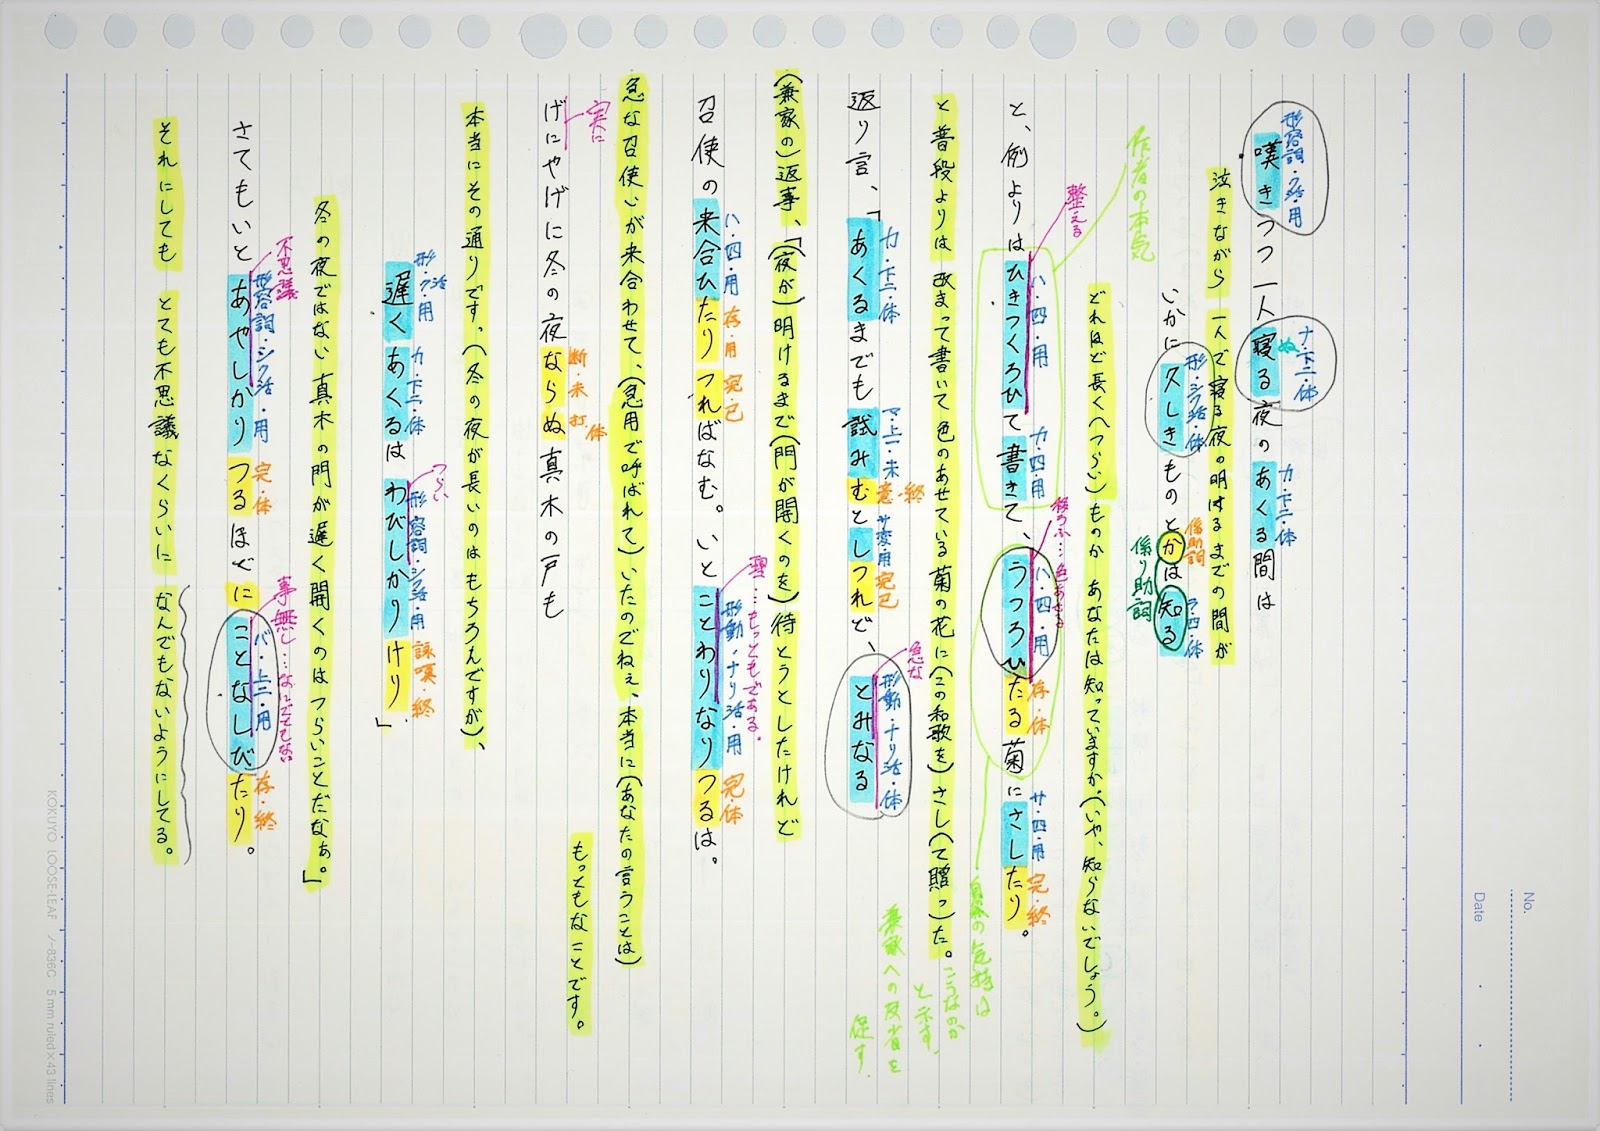 形容詞・ク活・用
嘆きつつ一人寝る夜のあくる間は
ナ・下二・体
ぬ
カ・下二・体
泣きながら 一人で寝る夜の明けるまでの間が
いかに久しきものとかは知る
形・シク活・体
係助詞
係り助詞
ラ・四・体
どれほど長く(つらい)ものか あなたは知っていますか。(いや、知らないでしょう。)
作者の本気
整える
と、例よりはひきつくろひて書きて、うつろひたる菊にさしたり。
ハ・四・用
カ・四・用
ハ・四・用
存・体
サ・四・用
完・終
と普段よりは 改まって書いて色のあせている菊の花に(この和歌を)さし(て贈っ)た。
の気持は
こうなのか
と示す。
兼家への反省を
促す。
返り言、「あくるまでも試みむとしつれど、とみなる
カ・下二・体
マ・上一・未
意・終
サ変・用
完・已
急な
形動・ナリ活・体
(兼家の)返事、「(夜が)明けるまで(門が開くのを)待とうとしたけれど
召使の来合ひたりつればなむ。いとことわりなりつるは。
ハ・四・用
存・用
完・已
理…もっともである。
形動・ナリ活・用
完・体
急な召使いが来合わせて、(急用で呼ばれて)いたのでねぇ、本当に(あなたの言うことは)
もっともなことです。
実に
げにやげに冬の夜ならぬ真木の戸も
断・未
打・体
本当にその通りです。(冬の夜が長いのはもちろんですが)、
遅くあくるはわびしかりけり」
形・ク活・用
カ・下二・体
つらい
形容詞・シク活・用
詠嘆・終
冬の夜ではない真木の門が遅く開くのはつらいことだなぁ。」
さてもいとあやしかりつるほどにことなしびたり。
不思議
形容詞・シク活・用
完・体
事無し…なんでもない
バ・上二・用
存・終
それにしても とても不思議なくらいに なんでもないようにしてる。
No.
Date
KOKUYO LOOSE-LEAF ノ-836C 5 mm ruled×43 lines